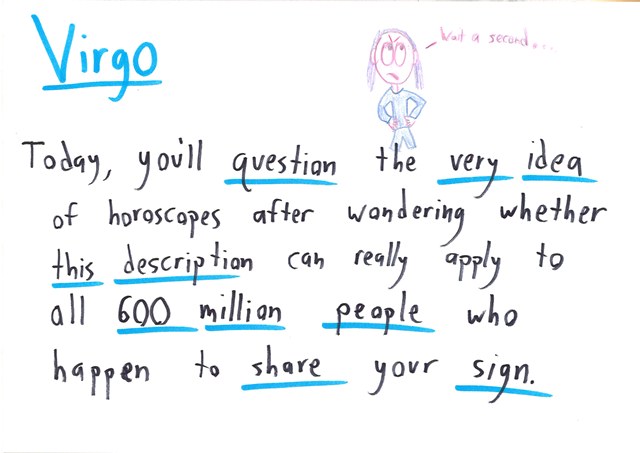 Virgo
Wait a second...
Today, you'll question the very idea
of horoscopes after wondering whether
this description can really apply to
all 600 million people who
happen to share your sign.